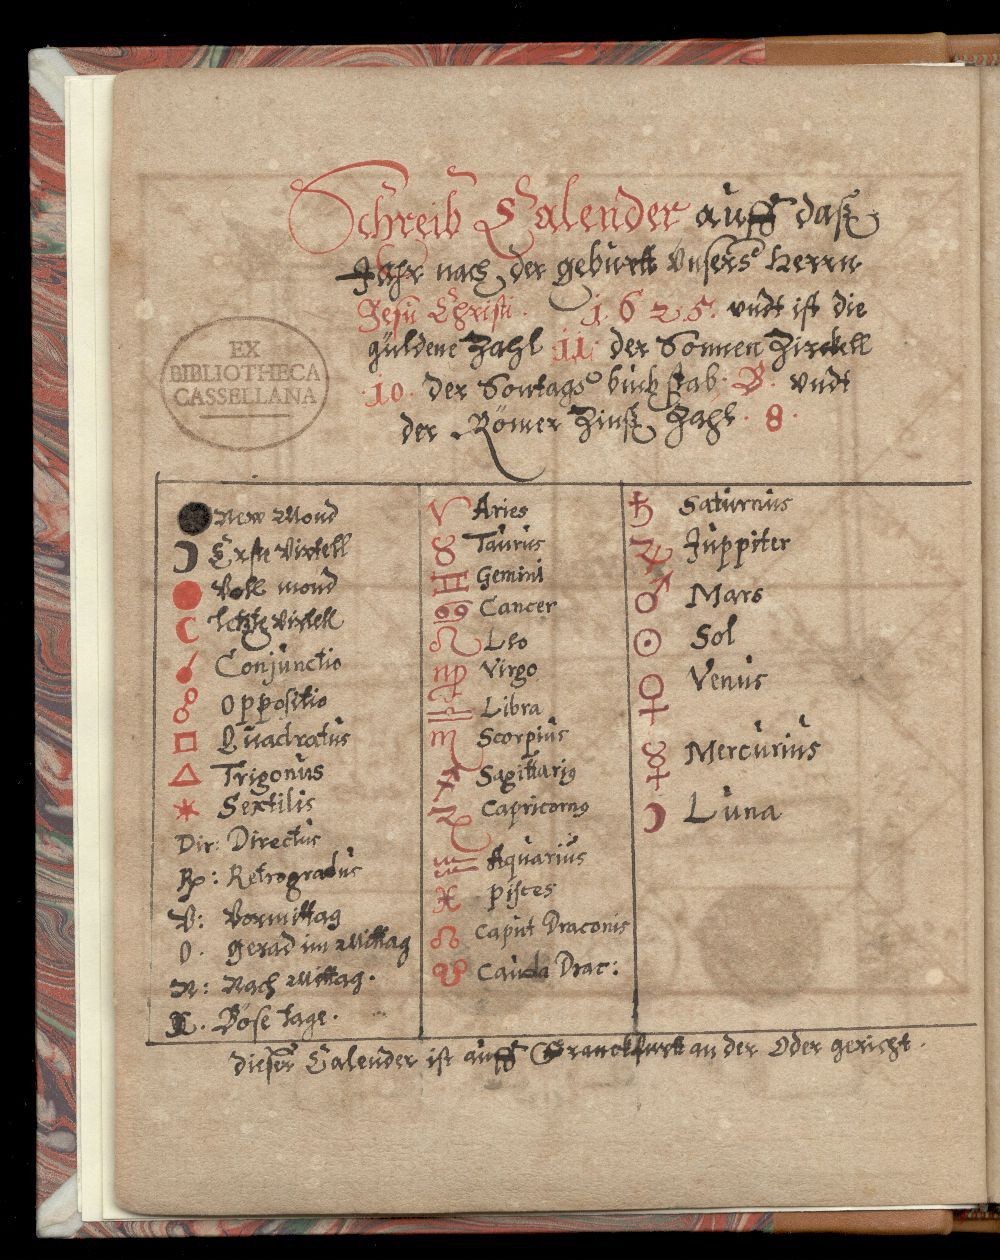 Schreib Calender auff daß
Jahr nach der gebürtt Unsers Herrn
Jesu Christi. 1625. vndt ist die
güldene Zahl 11. der Sonnen Zirckell
.10. der Sontags buchstab. B. vndt
der Römer Zinß Zahl. 8.
EX
BIBLIOTHECA
CASSELLANA
New Mond
Erste Virtell
Voll mond
letzte Virtell
Conjunctio
Oppositio
Quadratus
Trigonus
Sextilis
Dir: Directus
℞: Retrogradus
V: Vormittag
0. gerad im Mittag
N: Nach Mittag.
X. Böse tage.
♈ Aries
♉ Taurus
♊ Gemini
♋ Cancer
♌ Leo
♍ Virgo
♎ Libra
♏ Scorpius
♐ Sagittariꝰ
♑ Capricornꝰ
♒ Aquarius
♓ Pisces
☊ Caput Draconis
☋ Cauda Drac:
♄ Saturnus
♃ Juppiter
♂ Mars
☉ Sol
♀ Venus
☿ Mercurius
☽ Luna
dieser Calender ist auff Franckfurtt an der Oder gericht.